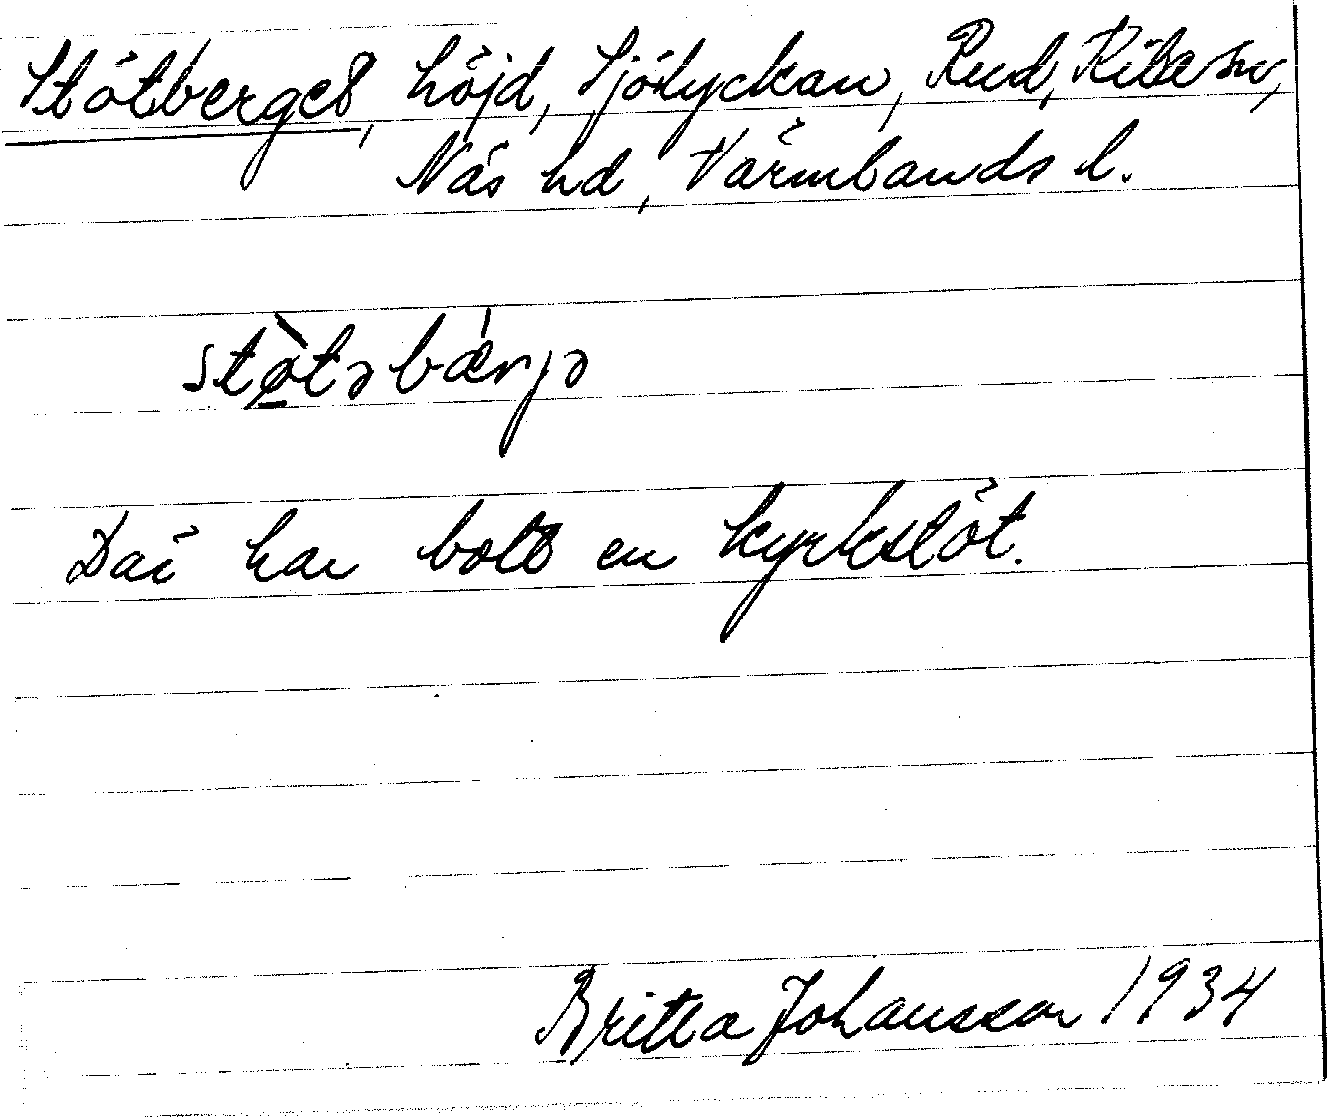 Stötberget, höjd, Sjölyckan, Rud, Kila sn,
Näs hd, Värmlands l.
stø̀təbǽrjə
Där har bott en kyrkstöt.
Britta Johansson 1934